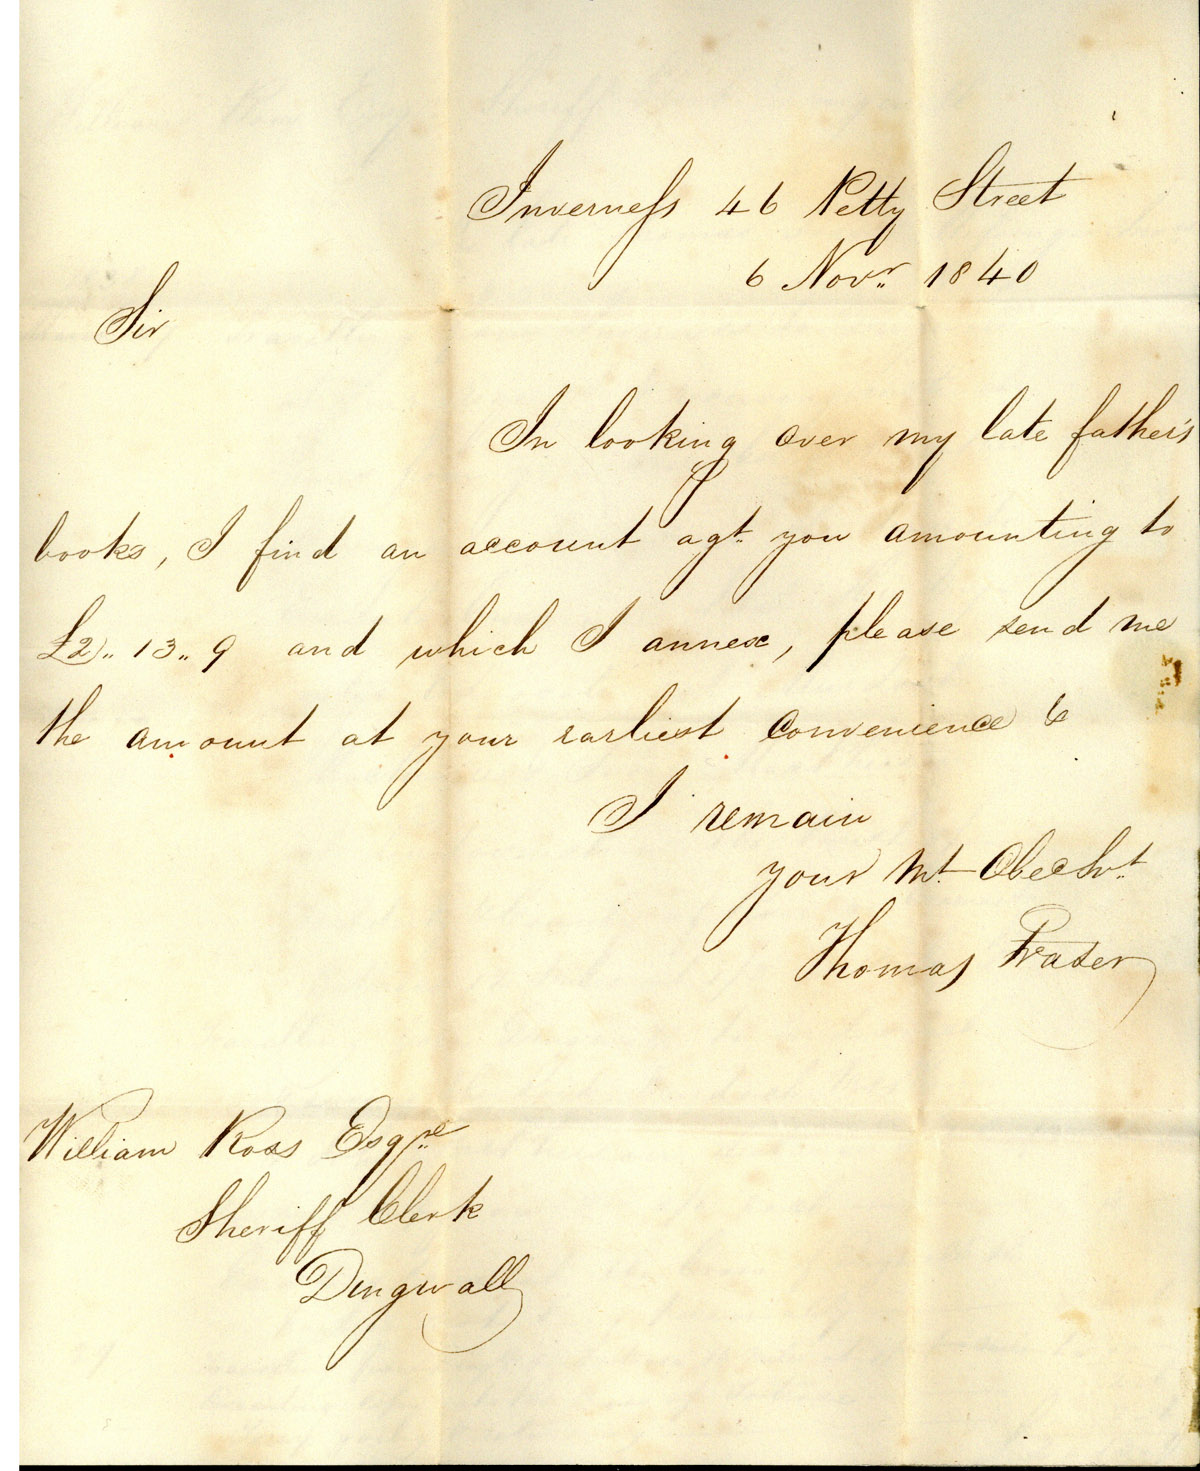 Inverness 46 Petty Street
6 Novr. 1840
Sir
In looking over my late father's
books, I find an account agt. you amounting to
£2.. 13.. 9 and which I annex, please send me
the amount at your earliest convenience &
I remain
your Mt. Obed Svt.
Thomas Fraser
William Ross Esqre.
Sheriff Clerk
Dingwall